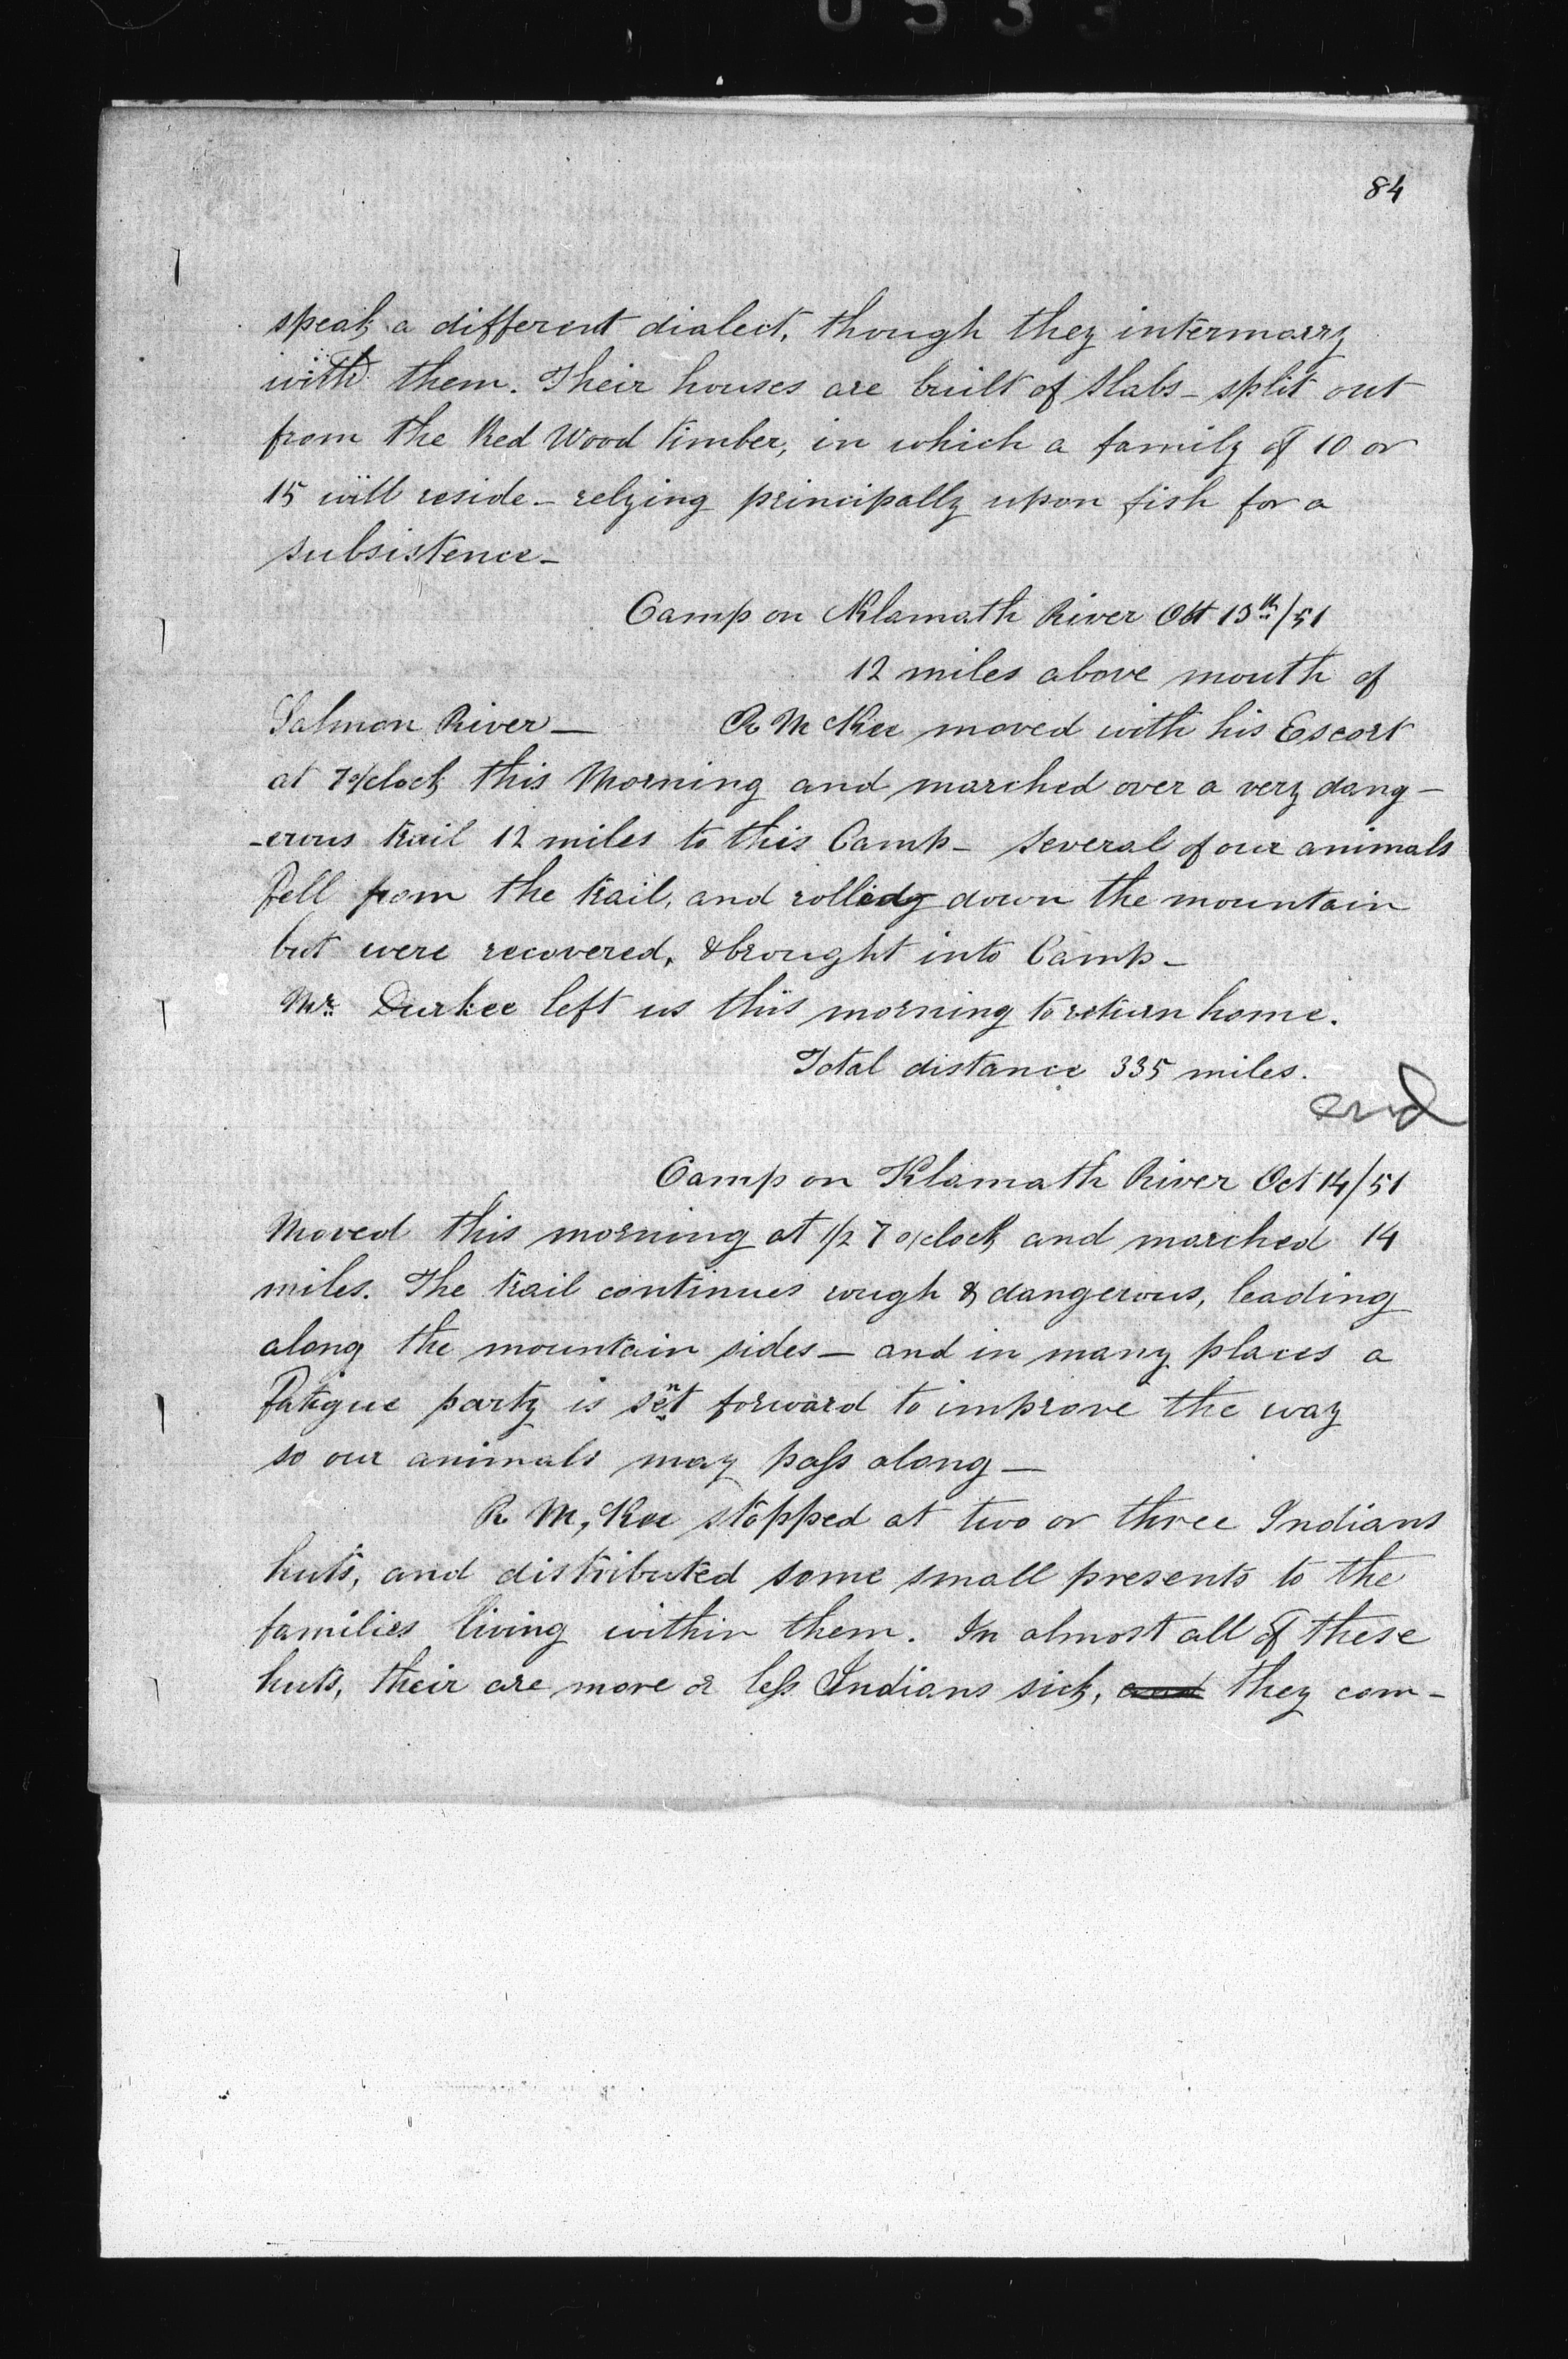 0533
84
speak a different dialect, though they intermarry
with them. Their houses are built of slabs - split out
from the Red Wood timber, in which a family of 10 or
15 will reside - relying principally upon fish for a
subsistence -
Camp on Klamath River Oct 13th/51
12 miles above mouth of
Salmon River — R McKee moved with his Escort
at 7 o/clock this Morning and marched over a very dang-
-erous trail 12 miles to this Camp - several of our animals
fell from the trail, and rolled down the mountain
but were recovered, & brought into Camp -
Mr. Durkee left us this morning to return home.
Total distance 335 miles.
end
Camp on Klamath River Oct 14/51
Moved this morning at 1/2 7 o/clock and marched 14
miles. The trail continues rough & dangerous, leading
along the mountain sides — and in many places a
fatigue party is sent forward to improve the way
so our animals may pass along —
R McKee stopped at two or three Indians
huts, and distributed some small presents to the
families living within them. In almost all of these
huts, their are more or less Indians sick, and they com-